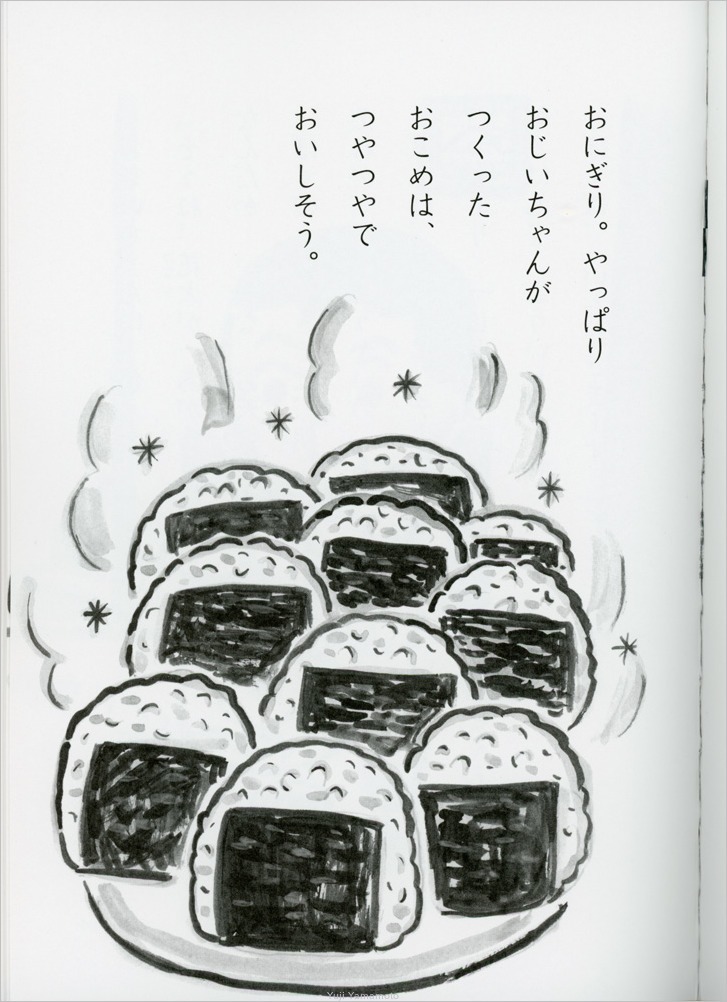 おにぎり。やっぱり
おじいちゃんが
つくった
おこめは、
つやつやで
おいしそう。
Yuji Yamamoto